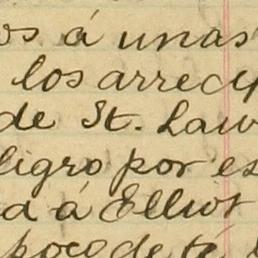 os á unas
los arrec
de St. Law
ligro por es
d á Elliot
poco de té